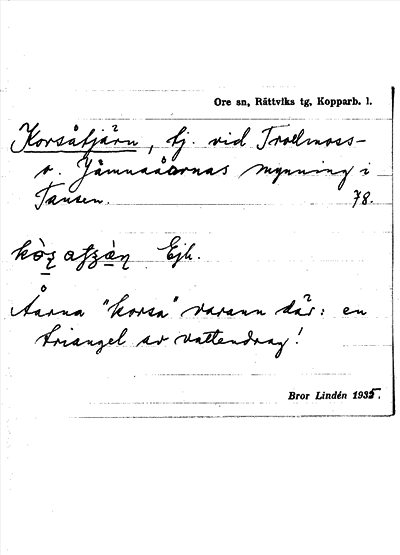 Ore sn, Rättviks tg, Kopparb. l.
Korsåtjärn, tj. vid Trollmoss-
o. Jämnaåarnas mynning i
Tansen. 78.
Ejh.
Åarna "korsa" varann där: en
triangel av vattendrag!
Bror Lindén 1935.